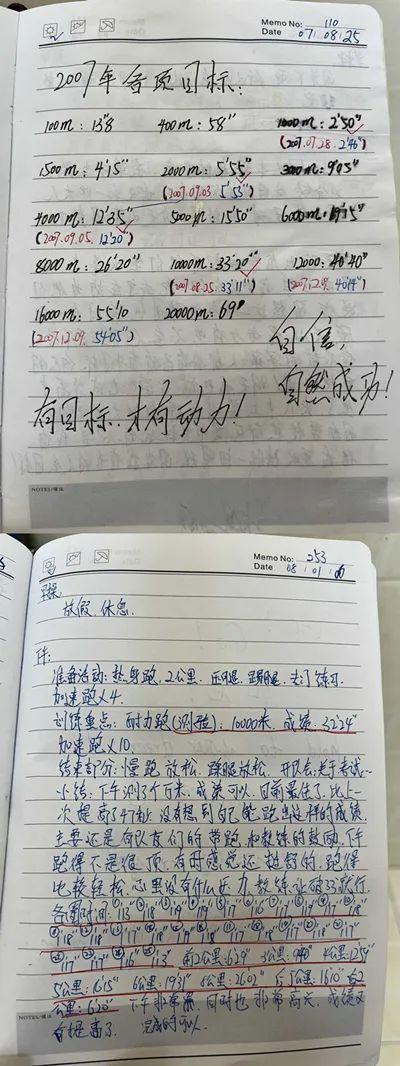 Memo No: 110
Date 07.08.25
2007年各项目标:
100m: 13"8 400m: 58" 1000m: 2'50"
(2007.07.28. 2'46")
1500m: 4'15" 2000m: 5'55" 3000m: 9'05"
(2007.09.03. 5'53")
4000m: 12'35" 5000m: 15'50" 6000m: 19'15"
(2007.09.05. 12'20")
8000m: 26'20" 10000m: 33'20" 12000: 40'40"
(2007.08.25. 33'11") (2007.12.09. 40'14")
16000m: 55'10 20000m: 69'
(2007.12.09. 54'05")
自信,
自然成功!
有目标,才有动力!
NOTES/备注
Memo No: 253
Date 08.01
早操:
放假、休息.
下午:
准备活动:热身跑、2公里、压腿、踢腿、专门练习.
加速跑×4.
训练重点:耐力跑(测验):10000米、成绩:32'24"
加速跑×10.
结束部分:慢跑放松、踩腿放松、开队会:关于考试…
小结:下午测了个万米、成绩可以、目前最佳了、比上一
次提高了47秒、没有想到自己能跑出这样的成绩.
主要还是有队友们的带跑和教练的鼓励、下午
跑得不是很顶、有时感觉还挺轻的、跑得
也较轻松、心里没有什么压力、教练让破33就行.
各圈时间:
前2公里:6'29" 3公里: 4公里:12'59"
5公里:16'15" 6公里:19'31" 8公里:26'02" 后5公里:16'10" 后2
公里:6'20" 下午非常累、同时也非常高兴、成绩又
提高了. 完成的可以.
NOTES/备注